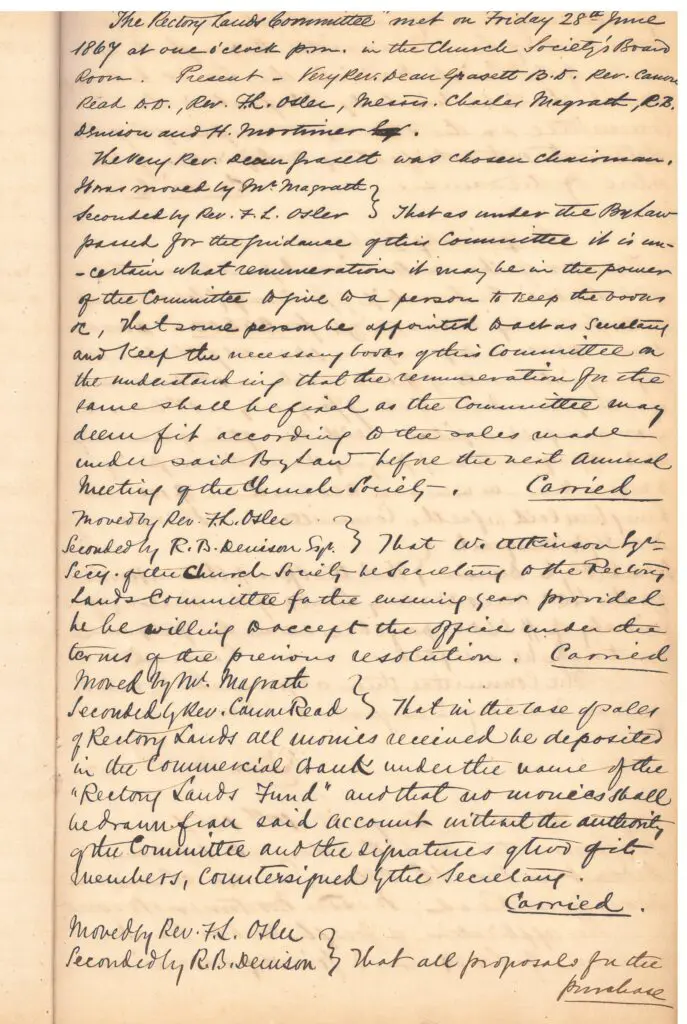 "The Rectory Lands Committee" met on Friday 28th June
1867 at one o'clock p.m. in the Church Society's Board
Room. Present - Very Rev. Dean Grasett B.D. Rev. Canon
Read D.D., Rev. F.L. Osler, Messrs. Charles Magrath, R.B.
Denison and H. Mortimer.
The Very Rev. Dean Grasett was chosen Chairman.
It was moved by Mr. Magrath
Seconded by Rev. F. L. Osler } That as under the By Law
passed for the guidance of this Committee it is un-
-certain what remuneration it may be in the power
of the Committee to give to a person to keep the books
&c, That some person be appointed to act as Secretary
and keep the necessary books of this Committee on
the understanding that the remuneration for the
same shall be fixed as the Committee may
deem fit according to the sales made
under said By Law before the next Annual
Meeting of the Church Society. Carried
Moved by Rev. F.L. Osler
Seconded by R.B. Denison Esqr. } That W. Atkinson Esqr
Secy. of the Church Society be Secretary to the Rectory
Lands Committee for the ensuing year provided
he be willing to accept the office under the
terms of the previous resolution. Carried
Moved by Mr. Magrath
Seconded by Rev. Canon Read } That in the case of sales
of Rectory Lands all monies received be deposited
in the Commercial Bank under the name of the
"Rectory Lands Fund" and that no monies shall
be drawn from said account without the authority
of the Committee and the signatures of two of its
members, countersigned by the Secretary.
Carried.
Moved by Rev. F.L. Osler
Seconded by R.B. Denison } That all proposals for the
purchase